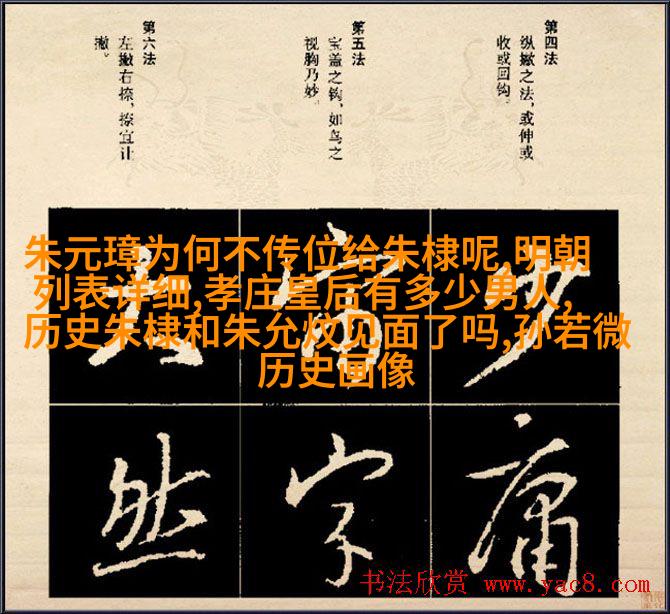 第四法
纵撇之法，或伸或
收或回钩。
第五法
宝盖之钩，如鸟之
视胸乃妙。
第六法
左撇右捺，捺宜让
撇。
朱元璋为何不传位给朱棣呢,明朝
列表详细,孝庄皇后有多少男人,
历史朱棣和朱允炆见面了吗,孙若微
历史画像
少
庸
大
庸
字
然
书法欣赏 www.yac8.com